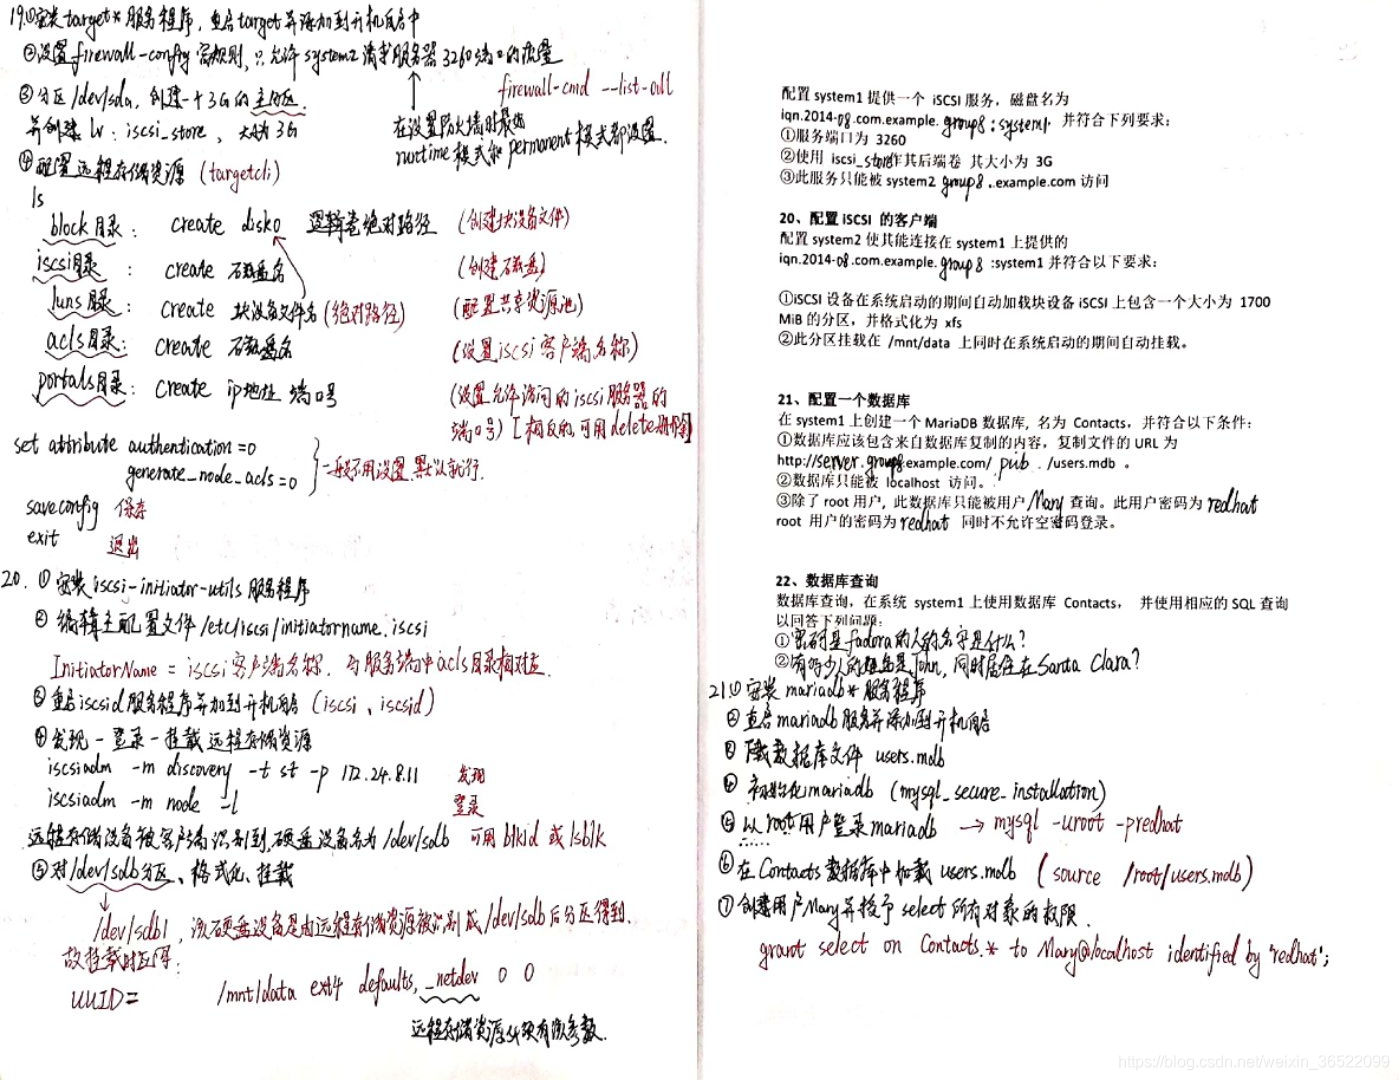 19.①安装target*服务程序，重启target并添加到开机自启中
②设置firewall-config富规则，只允许system2请求服务器3260端口的流量
firewall-cmd --list-all
③分区/dev/sda，创建一个3G的主分区.
并创建lv：iscsi_store、大小为3G
在设置防火墙时最好
runtime模式和permanent模式都设置.
④配置远程存储资源（targetcli）
ls
block目录： create disk0 逻辑卷绝对路径 (创建块设备文件)
iscsi目录： create 磁盘名 (创建磁盘)
luns目录： create 块设备文件名(绝对路径) (配置共享资源池)
acls目录： create 磁盘名 (设置iscsi客户端名称)
portals目录： create ip地址 端口号 (设置允许访问的iscsi服务器的
端口号)[相反的,可用delete删除]
set attribute authentication=0
generate_node_acls=0 }一般不用设置.默认就行.
saveconfig 保存
exit 退出
20.①安装iscsi-initiator-utils服务程序
②编辑主配置文件/etc/iscsi/initiatorname.iscsi
InitiatorName = iscsi客户端名称. 与服务端中acls目录相对应.
③重启iscsid服务程序并加到开机自启（iscsi、iscsid）
④发现-登录-挂载远程存储资源
iscsiadm -m discovery -t st -p 172.24.8.11 发现
iscsiadm -m node -l 登录
远程存储设备被客户端识别到,硬盘设备名为/dev/sdb 可用blkid或lsblk
⑤对/dev/sdb分区、格式化、挂载
/dev/sdb1，该硬盘设备是由远程存储资源被识别成/dev/sdb后分区得到.
故挂载时应写：
UUID= /mnt/data ext4 defaults,_netdev 0 0
远程存储资源必须有该参数.
配置 system1 提供一个 iSCSI 服务，磁盘名为
iqn.2014-08.com.example.group8:system1，并符合下列要求：
①服务端口为 3260
②使用 iscsi_store作其后端卷 其大小为 3G
③此服务只能被 system2 group8.example.com 访问
20、配置 iSCSI 的客户端
配置 system2 使其能连接在 system1 上提供的
iqn.2014-08.com.example.group8:system1 并符合以下要求：
①iSCSI 设备在系统启动的期间自动加载块设备 iSCSI 上包含一个大小为 1700
MiB 的分区，并格式化为 xfs
②此分区挂载在 /mnt/data 上同时在系统启动的期间自动挂载。
21、配置一个数据库
在 system1 上创建一个 MariaDB 数据库, 名为 Contacts，并符合以下条件：
①数据库应该包含来自数据库复制的内容，复制文件的 URL 为
http://server.group8.example.com/ pub ./users.mdb 。
②数据库只能被 localhost 访问。
③除了 root 用户, 此数据库只能被用户 Mary 查询。此用户密码为 redhat
root 用户的密码为 redhat 同时不允许空密码登录。
22、数据库查询
数据库查询，在系统 system1 上使用数据库 Contacts， 并使用相应的 SQL 查询
以回答下列问题：
①密码是fadora的人的名字是什么?
②有多少人的姓名是John,同时居住在Santa Clara?
21①安装mariadb*服务程序
②重启mariadb服务并添加到开机自启
③下载数据库文件 users.mdb
④初始化mariadb（mysql_secure_installation）
⑤以root用户登录mariadb →mysql -uroot -predhat
⑥在Contacts数据库中加载users.mdb（source /root/users.mdb）
⑦创建用户Mary并授予select所有对象的权限.
grant select on Contacts.* to Mary@localhost identified by 'redhat';
https://blog.csdn.net/weixin_36522099